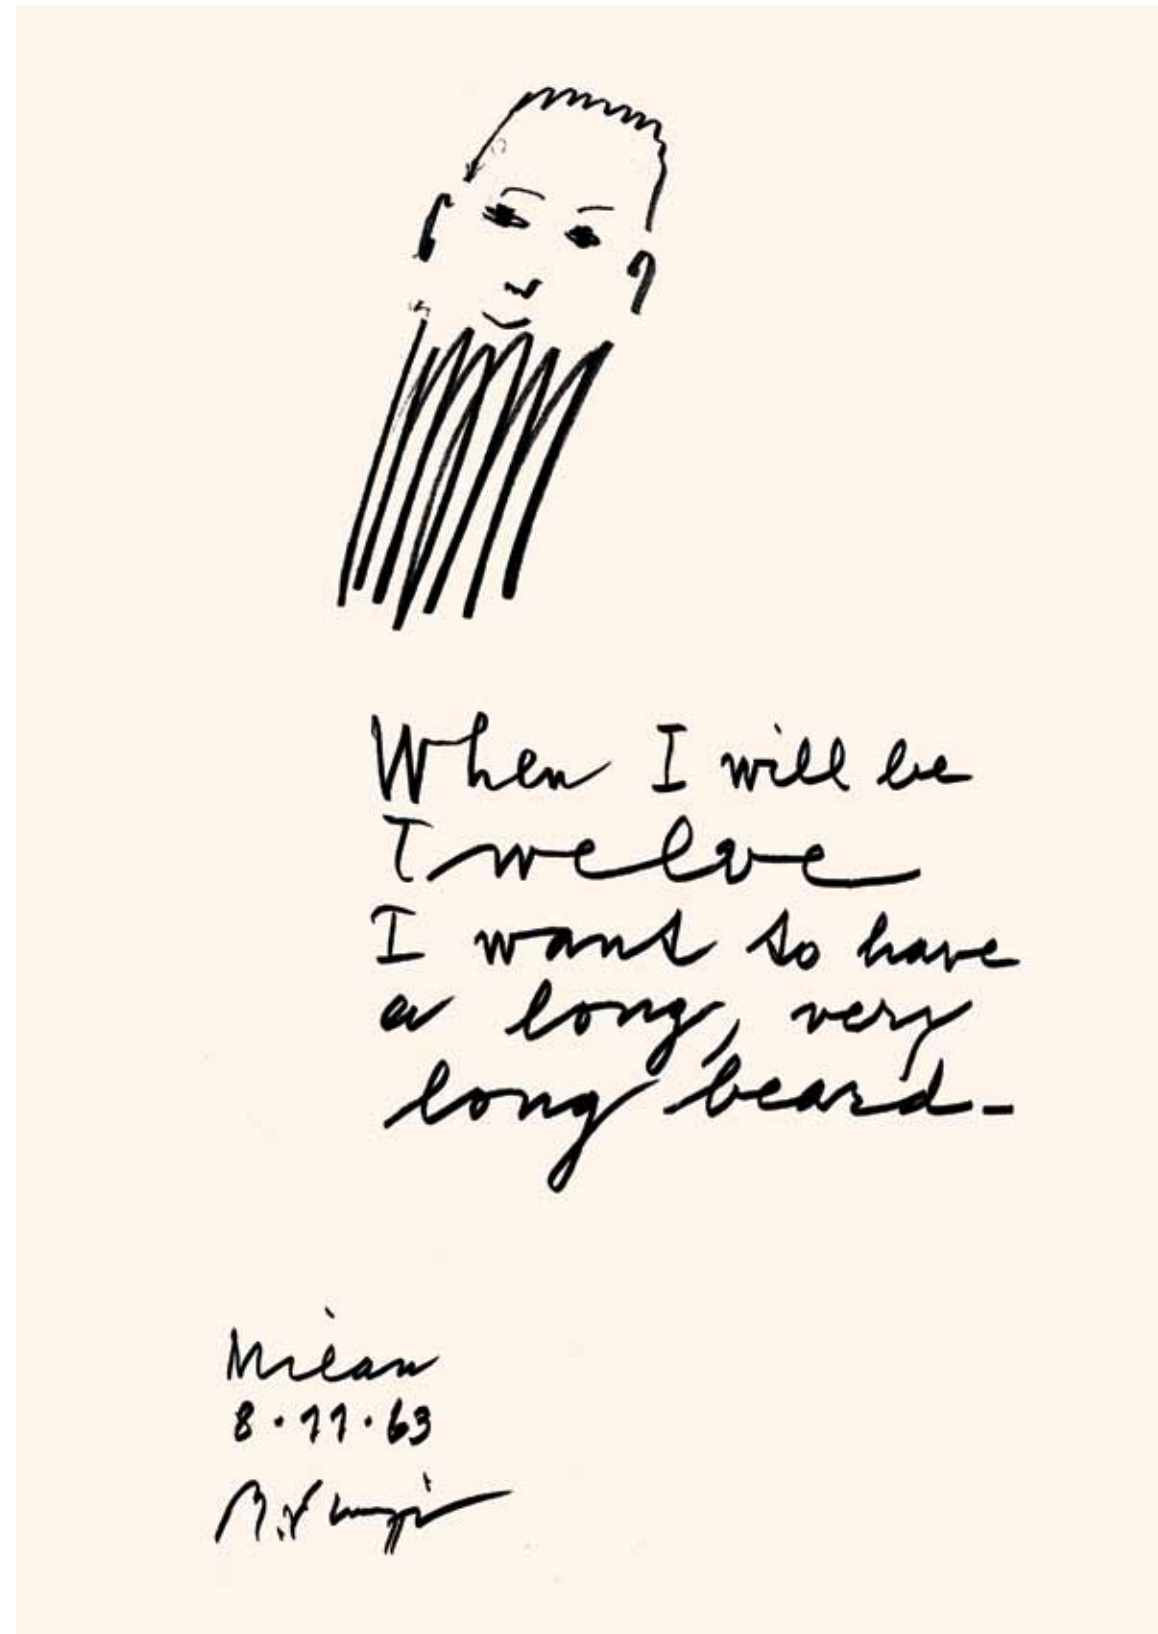 When I will be
Twelve
I want to have
a long, very
long beard-
Milan
8.11.63